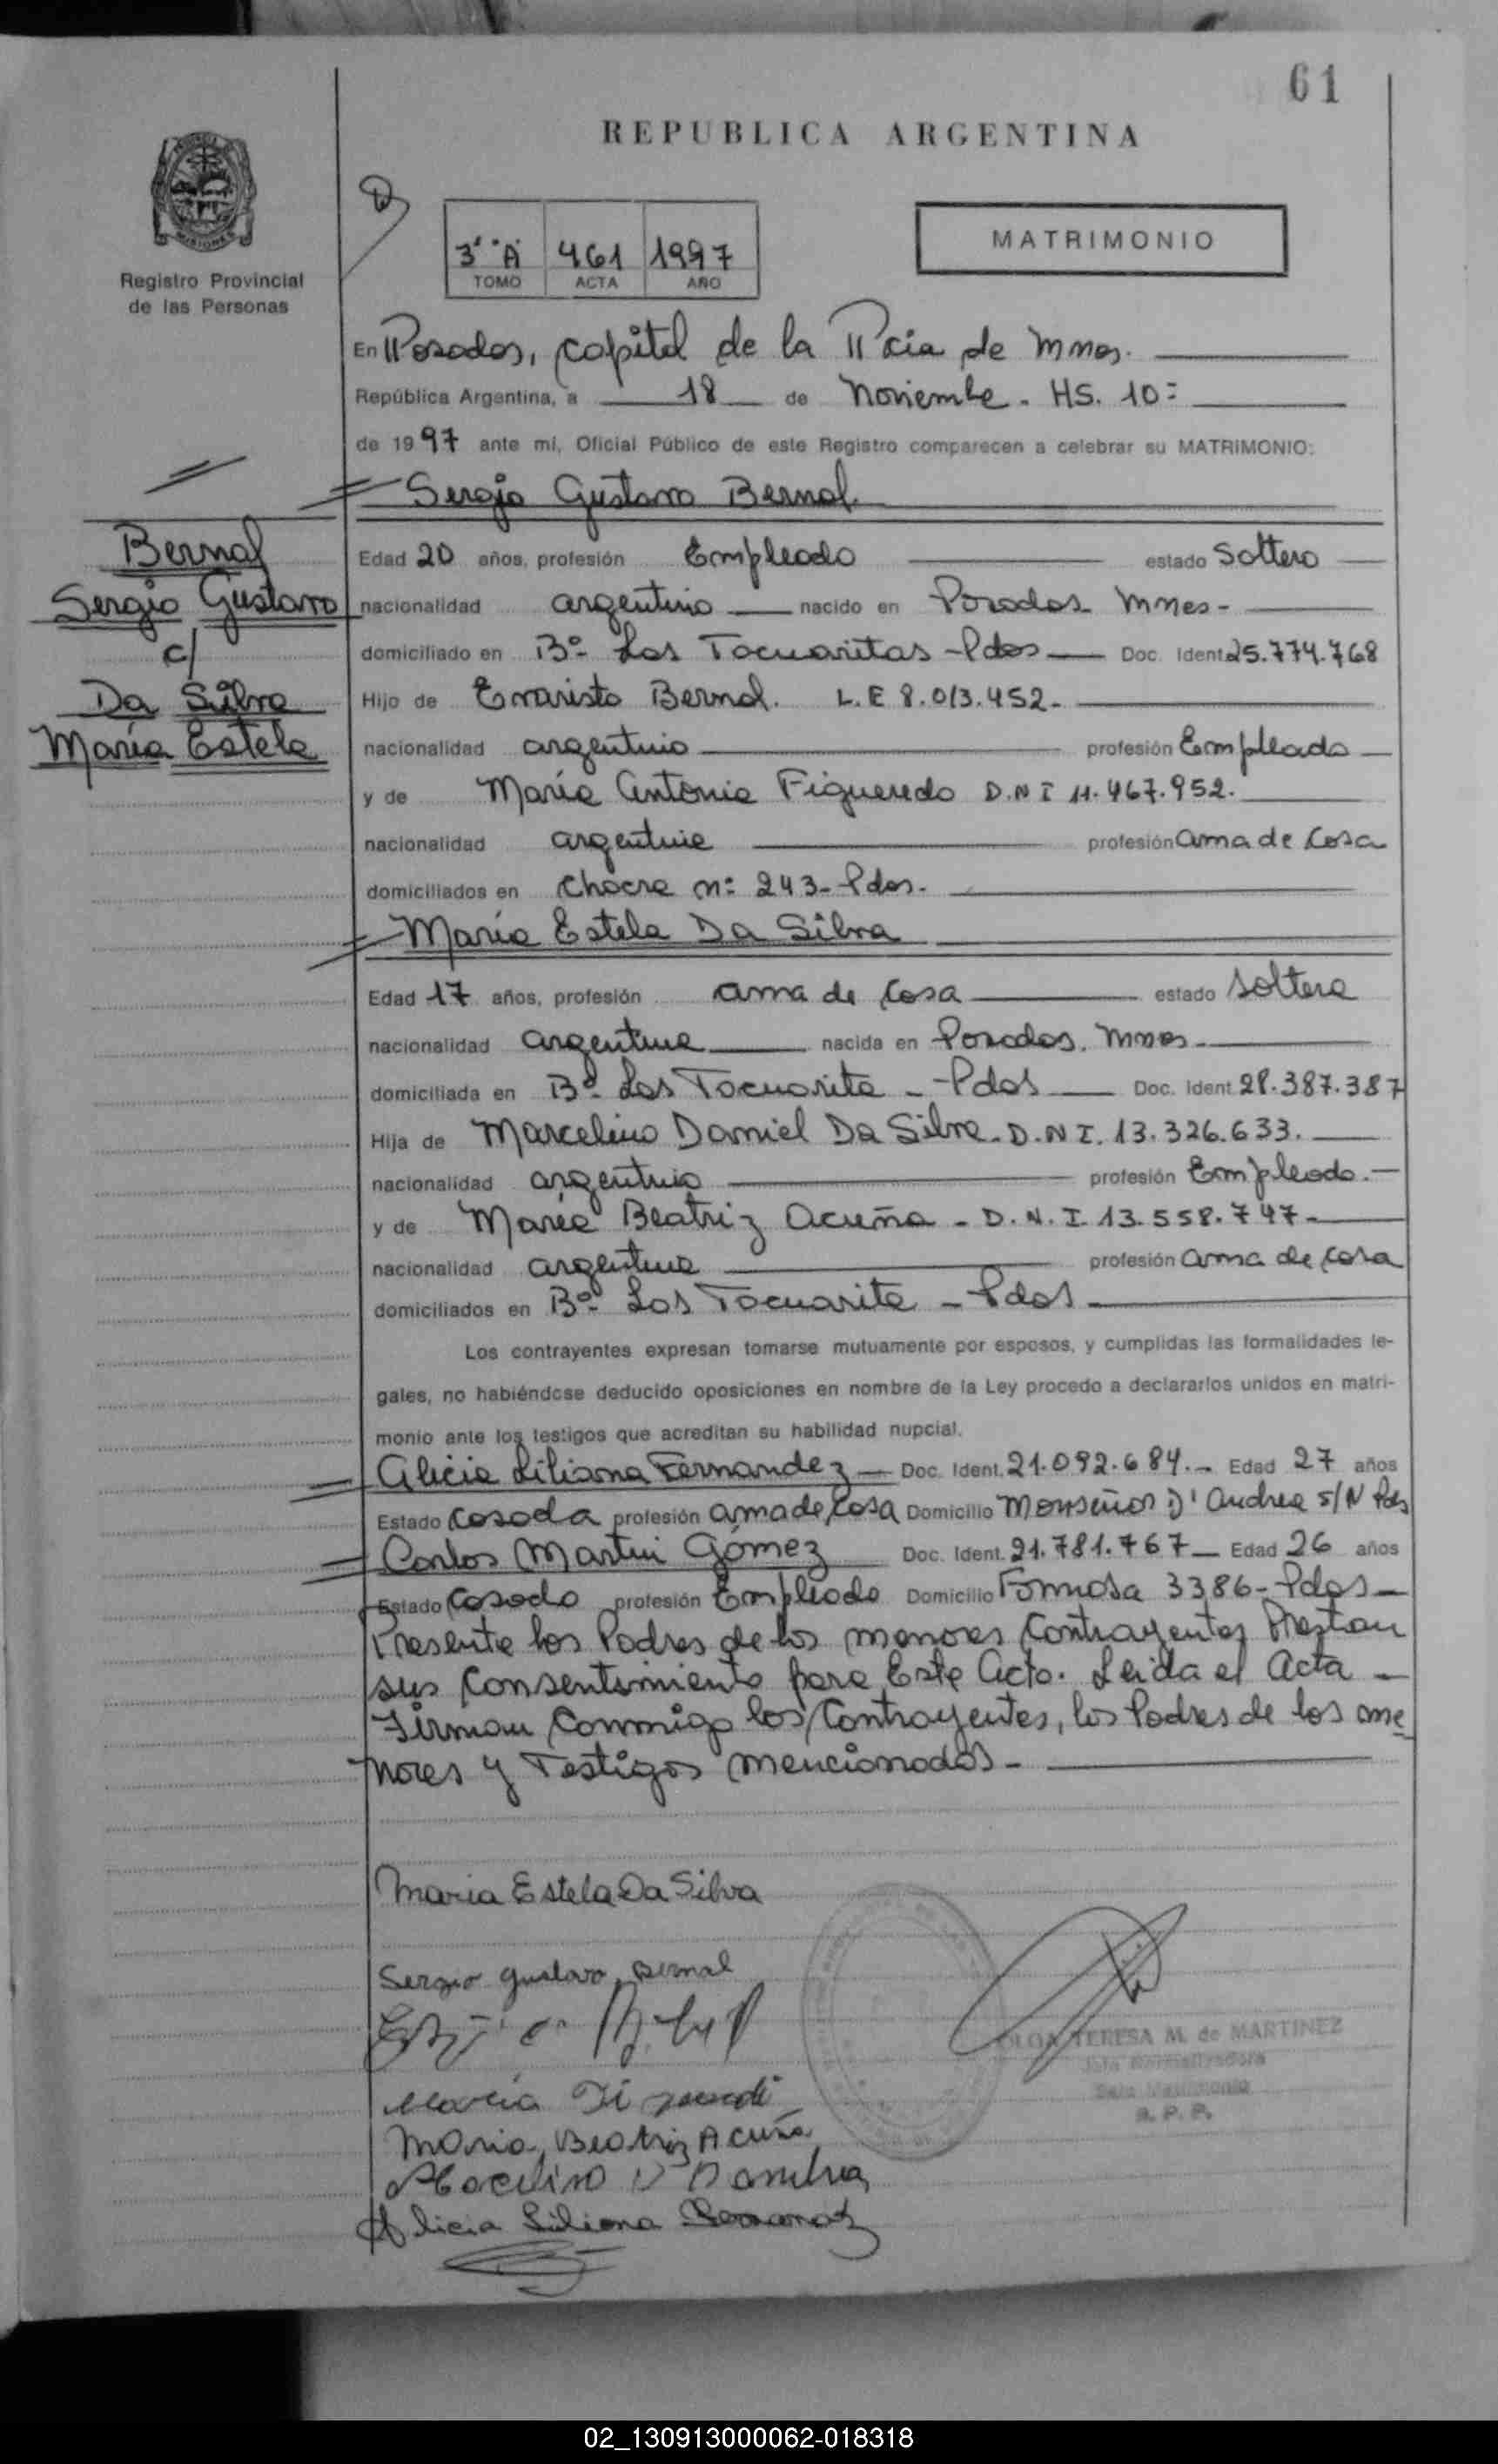 61
REPUBLICA ARGENTINA
MISIONES
Registro Provincial
de las Personas
3º "A" 461 1997
TOMO ACTA AÑO
MATRIMONIO
En Posadas, capital de la Pcia de Mnes.
República Argentina, a 18 de Noviembre. HS. 10:
de 1997 ante mí, Oficial Público de este Registro comparecen a celebrar su MATRIMONIO:
Sergio Gustavo Bernal
Bernal
Sergio Gustavo
c/
Da Silva
María Estela
Edad 20 años, profesión Empleado estado Soltero
nacionalidad argentino nacido en Posadas Mnes-
domiciliado en Bº Las Tacuaritas - Pdas Doc. Ident 25.774.768
Hijo de Evaristo Bernal. L.E 8.013.452-
nacionalidad argentino profesión Empleado
y de María Antonia Figueredo D.N I 11.467.952.
nacionalidad argentina profesión ama de Casa
domiciliados en Chacra nº 243- Pdas.
María Estela Da Silva
Edad 17 años, profesión ama de Casa estado Soltera
nacionalidad argentina nacida en Posadas. Mnes-
domiciliada en Bº Las Tacuarita - Pdas Doc. Ident 28.387.387
Hija de Marcelino Daniel Da Silva. D.N I. 13.326.633.
nacionalidad argentino profesión Empleado.-
y de María Beatriz Acuña - D.N.I. 13.558.747-
nacionalidad argentina profesión ama de casa
domiciliados en Bº Las Tacuarita - Pdas
Los contrayentes expresan tomarse mutuamente por esposos, y cumplidas las formalidades le-
gales, no habiéndose deducido oposiciones en nombre de la Ley procedo a declararlos unidos en matri-
monio ante los testigos que acreditan su habilidad nupcial.
Alicia Liliana Fernandez Doc. Ident. 21.092.684.- Edad 27 años
Estado Casada profesión ama de Casa Domicilio Monseñor D'Andrea S/N Pdas
Carlos Martin Gómez Doc. Ident. 21.781.767 Edad 26 años
Estado Casado profesión Empleado Domicilio Formosa 3386- Pdas
Presente los Padres de los menores Contrayentes Prestan
sus Consentimiento para Este Acto. Leida el Acta -
Firman Conmigo los Contrayentes, los Padres de los me
nores y Testigos mencionados-
Maria Estela Da Silva
Sergio Gustavo Bernal
OLGA TERESA M. de MARTINEZ
Sala Matrimonio
R. P. P.
Maria
Maria Beatriz Acuña
Alicia Liliana
02_130913000062-018318